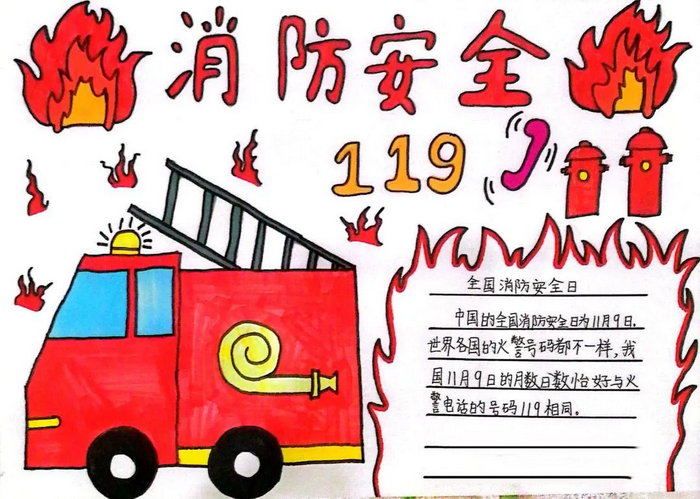 消防安全
119
全国消防安全日
中国的全国消防安全日为11月9日.
世界各国的火警号码都不一样,我
国11月9日的月数日数恰好与火
警电话的号码119相同。